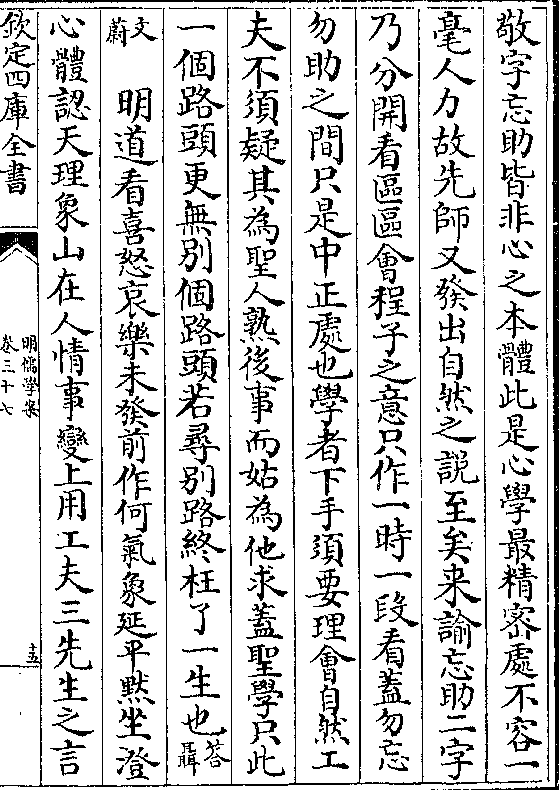 敬字忘助皆非心之本體此是心學最精密處不容一
毫人力故先師又發出自然之說至矣来諭忘助二字
乃分開看區區會程子之意只作一時一段看蓋勿忘
勿助之間只是中正處也學者下手須要理會自然工
夫不須疑其為聖人熟後事而姑為他求蓋聖學只此
一個路頭更無別個路頭若尋別路終枉了一生也答聶
文蔚
明道看喜怒哀樂未發前作何氣象延平黙坐澄
心體認天理象山在人情事變上用工夫三先生之言
欽定四庫全書
明儒學案
卷三十七
十五